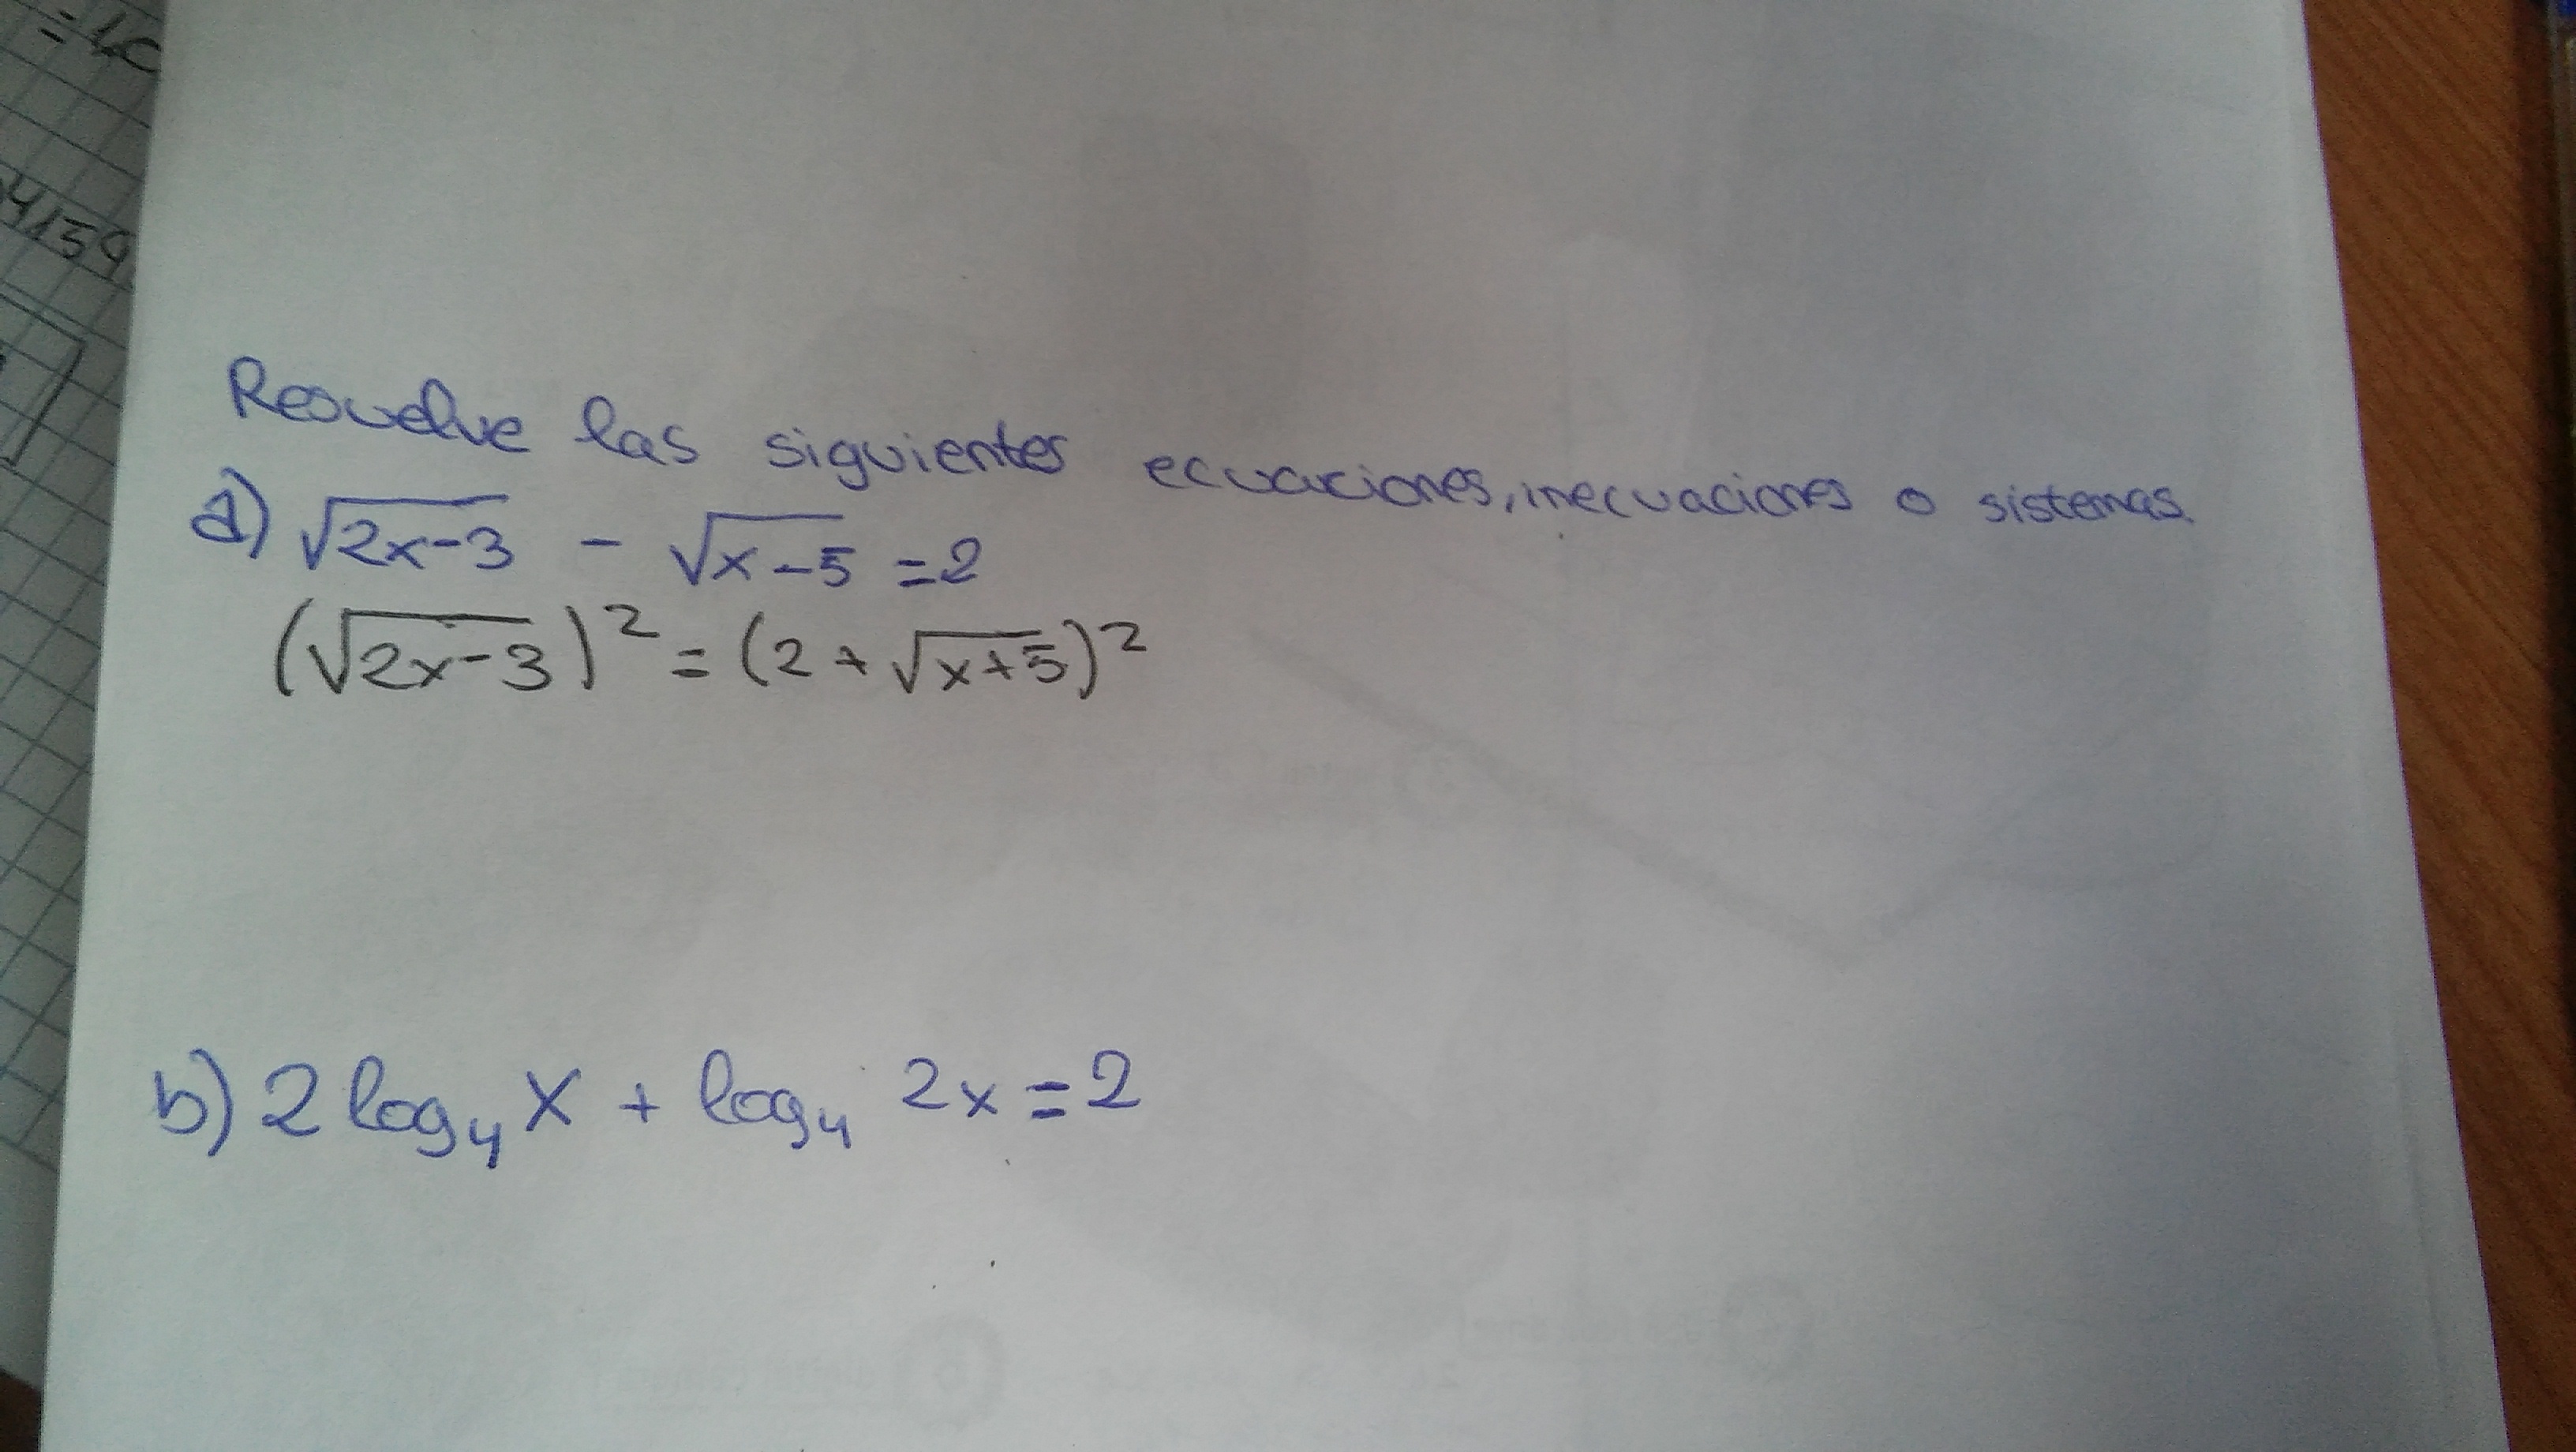 = 40
4159
Resuelve las siguientes ecuaciones, inecuaciones o sistemas.
a) √2x-3 - √x-5 = 2
(√2x-3)² = (2 + √x+5)²
b) 2 log₄ x + log₄ 2x = 2